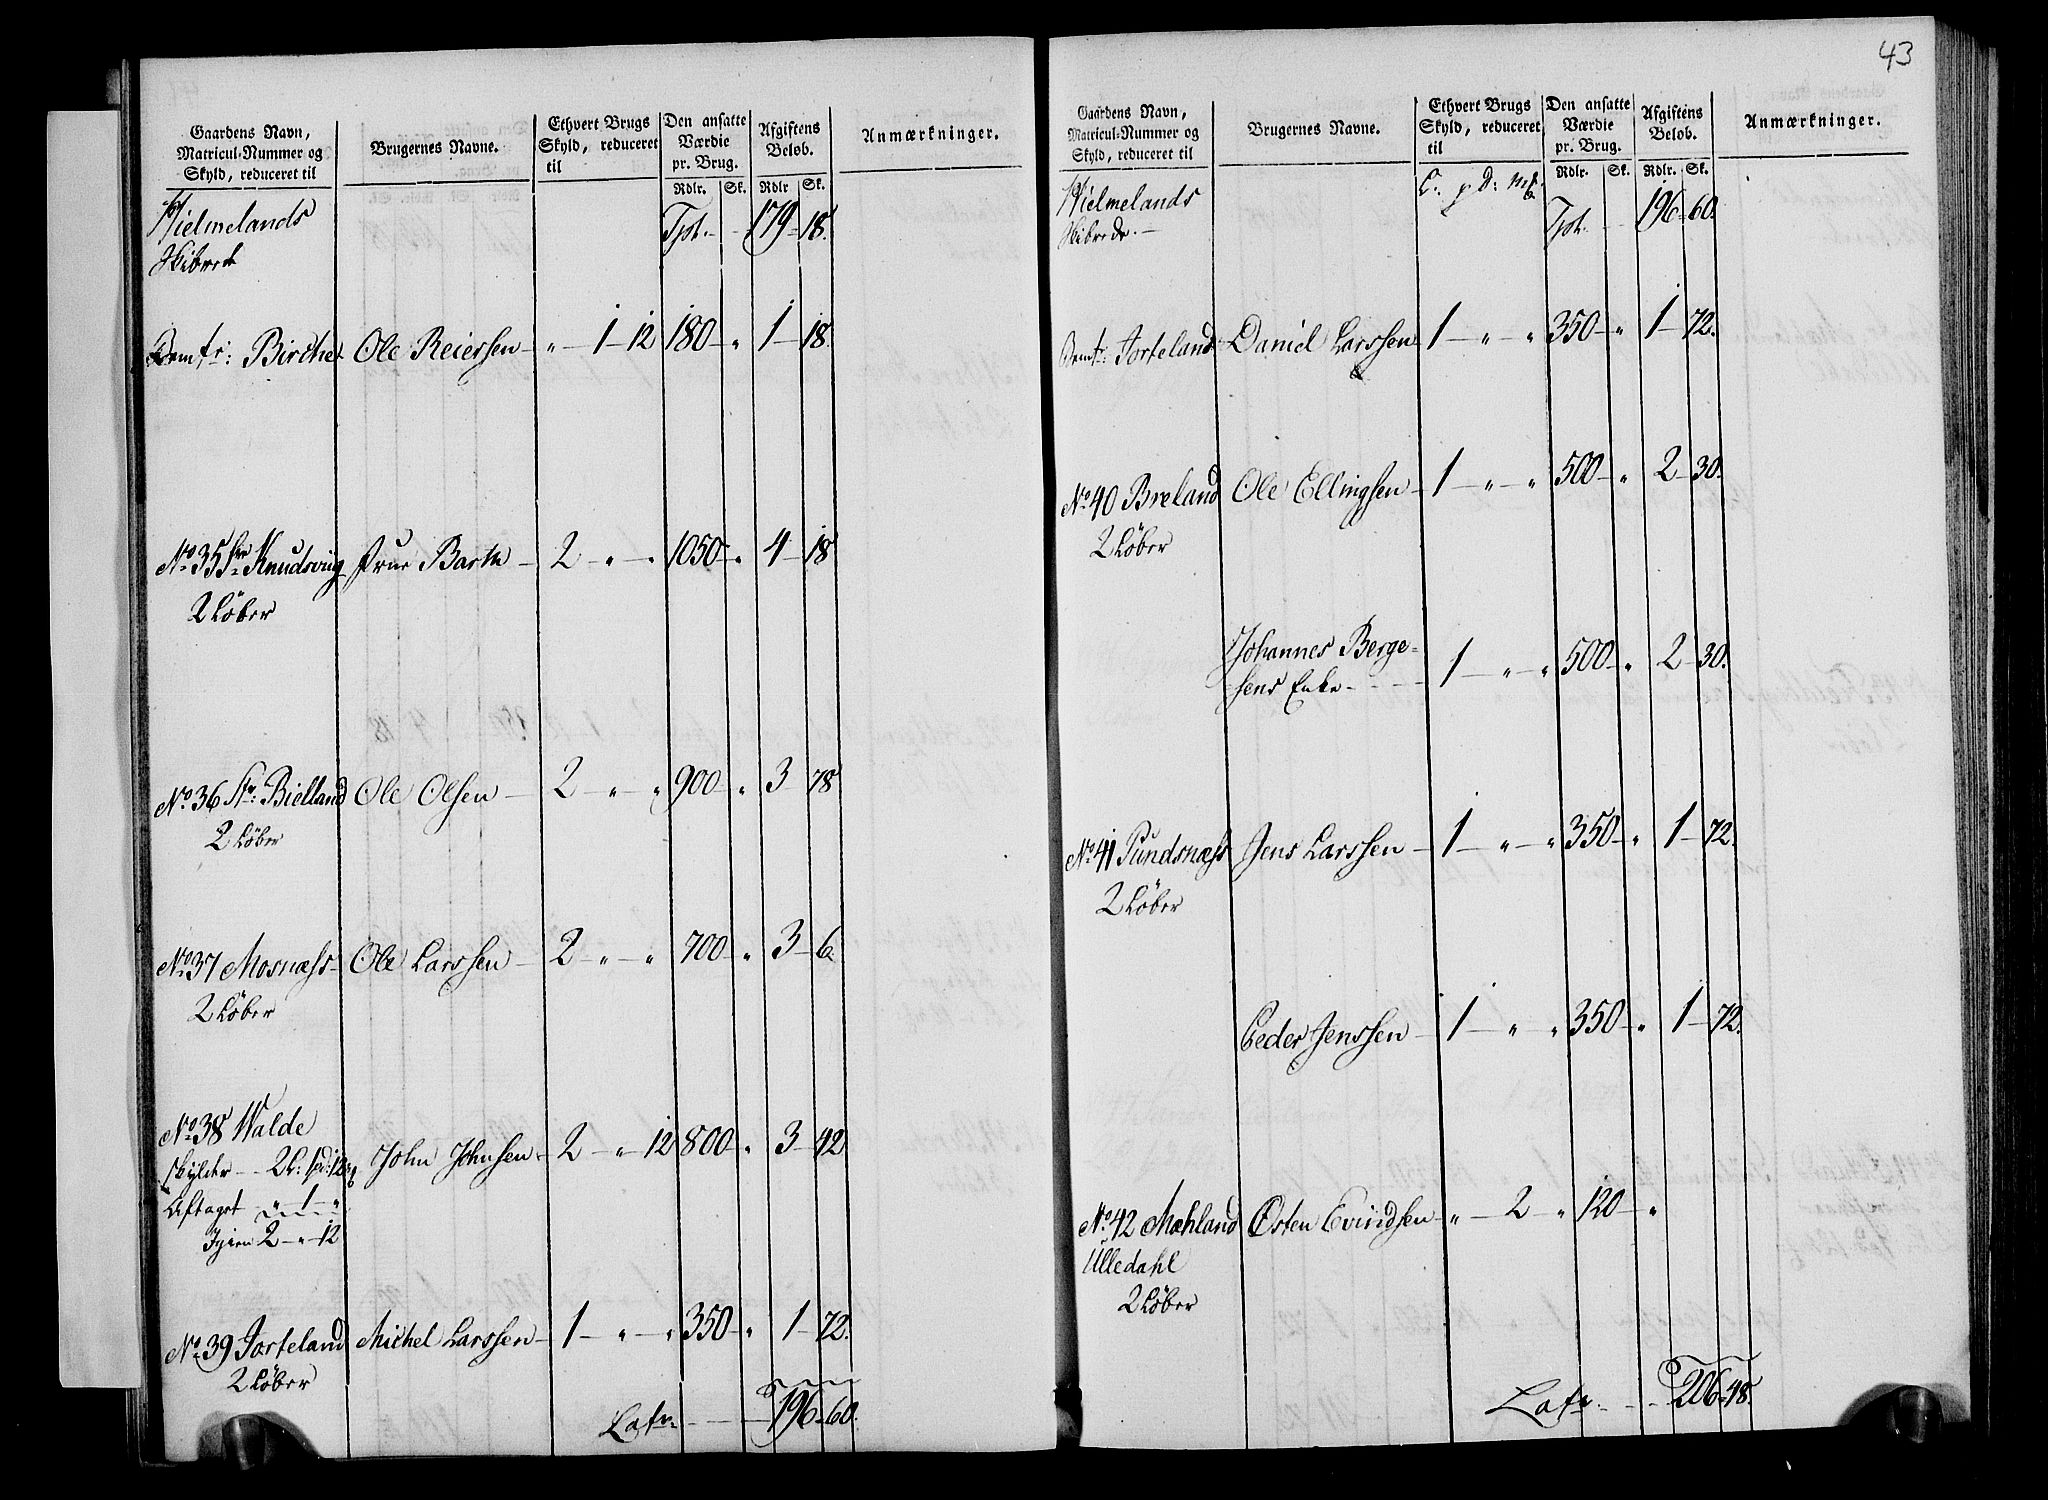 Gaardens Navn, Matricul-Nummer og Skyld, reduceret til | Brugernes Navne. | Ethvert Brugs Skyld, reduceret til | Den ansatte Værdie pr. Brug. Rdlr. Sk. | Afgiftens Beløb. Rdlr Sk. | Anmærkninger.
Hielmelands Tpt. 179 18.
Skibrede
Bemte: Birche Ole Reiersen „ 1 12 180 „ 1 18.
No 35 Knudsviig Frue Barth 2 „ „ 1050 „ 4 18
2 Löber
No 36 Bielland Ole Olsen 2 „ „ 900 „ 3 78
2 Löber
No 37 Mosnæss Ole Larssen 2 „ „ 700 „ 3 6.
2 Löber
No 38 Walde
skylder 2 L: 1 pd: 12 John Johnsen 2 „ 12 800 „ 3 42
Aftaget „ 1 „
Igien 2 „ 12
No 39 Jorteland Michel Larssen 1 „ „ 350 „ 1 72.
2 Löber
Latr. 196 60.
43
Gaardens Navn, Matricul-Nummer og Skyld, reduceret til | Brugernes Navne. | Ethvert Brugs Skyld, reduceret til | Den ansatte Værdie pr. Brug. Rdlr. Sk. | Afgiftens Beløb. Rdlr. Sk. | Anmærkninger.
Hielmelands Tpt. 196 60.
Skibrede.
Bemte: Jorteland Daniel Larssen 1 „ „ 350 „ 1 72.
No 40 Breland Ole Ellingsen 1 „ „ 500 „ 2 30.
2 Löber
Johannes Berge-
sens Enke 1 „ „ 500 „ 2 30.
No 41 Pundsnæss Jens Larssen 1 „ „ 350 „ 1 72.
2 Löber
Peder Jenssen 1 „ „ 350 „ 1 72.
No 42 Mæhland Østen Evindsen „ 2 „ 120 „
Ulledahl
2 Löber
Latr. 206 48.